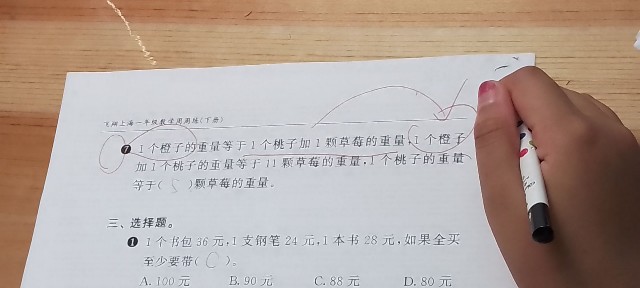 飞翔上海一年级数学周周练(下册)
❼ 1个橙子的重量等于1个桃子加1颗草莓的重量,1个橙子
加1个桃子的重量等于11颗草莓的重量,1个桃子的重量
等于( 5 )颗草莓的重量。
三、选择题。
❶ 1个书包36元,1支钢笔24元,1本书28元,如果全买
至少要带( C )。
A. 100元 B. 90元 C. 88元 D. 80元